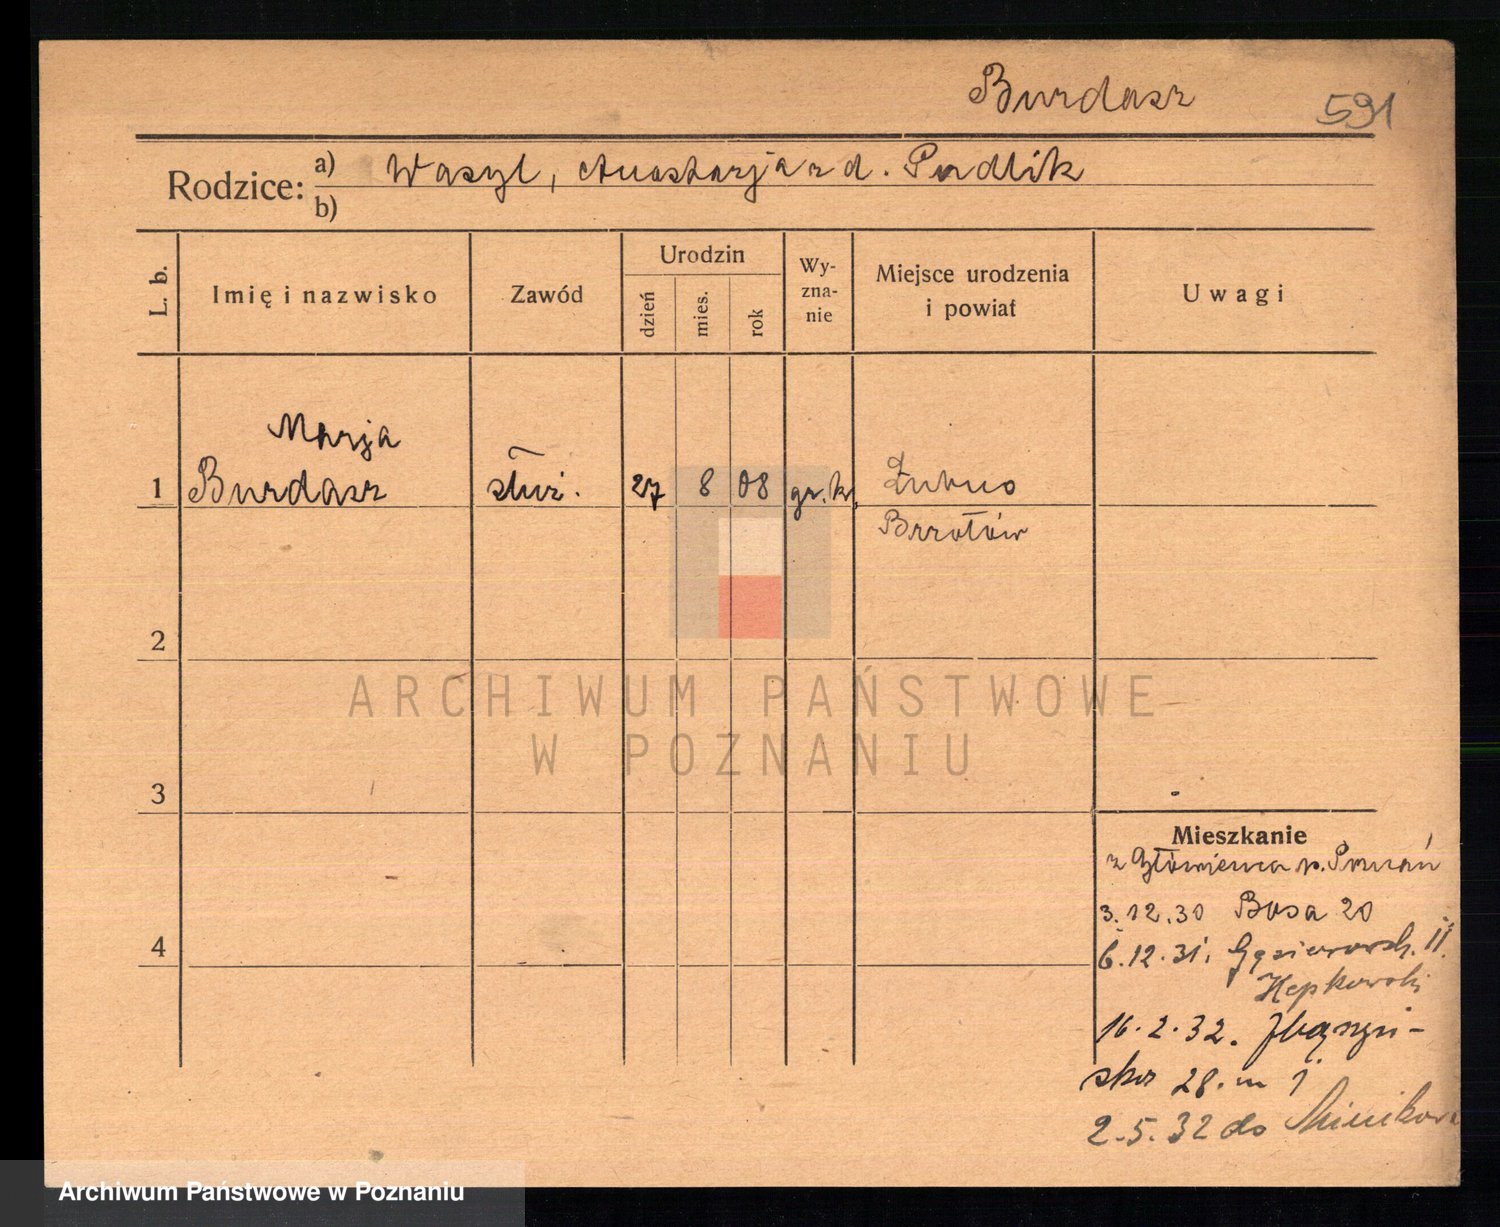 Burdasz
591
Rodzice:
a) Wasyl, Anastazja z d. Pudlik
b)
L. b.
Imię i nazwisko
Zawód
Urodzin
dzień
mies.
rok
Wy-
zna-
nie
Miejsce urodzenia
i powiat
Uwagi
Marja
1 Burdasz służ. 27 8 08 gr. k.
Brzotów
2
ARCHIWUM PAŃSTWOWE
W POZNANIU
3
Mieszkanie
z Główieńca p. Poznań
3.12.30 Bosa 20
4
6.12.31. Gąsiorowsk. 11.
Hepkowski
16.2.32. Zbąszyń-
ska 28. m 1
2.5.32 do Minikowa
Archiwum Państwowe w Poznaniu